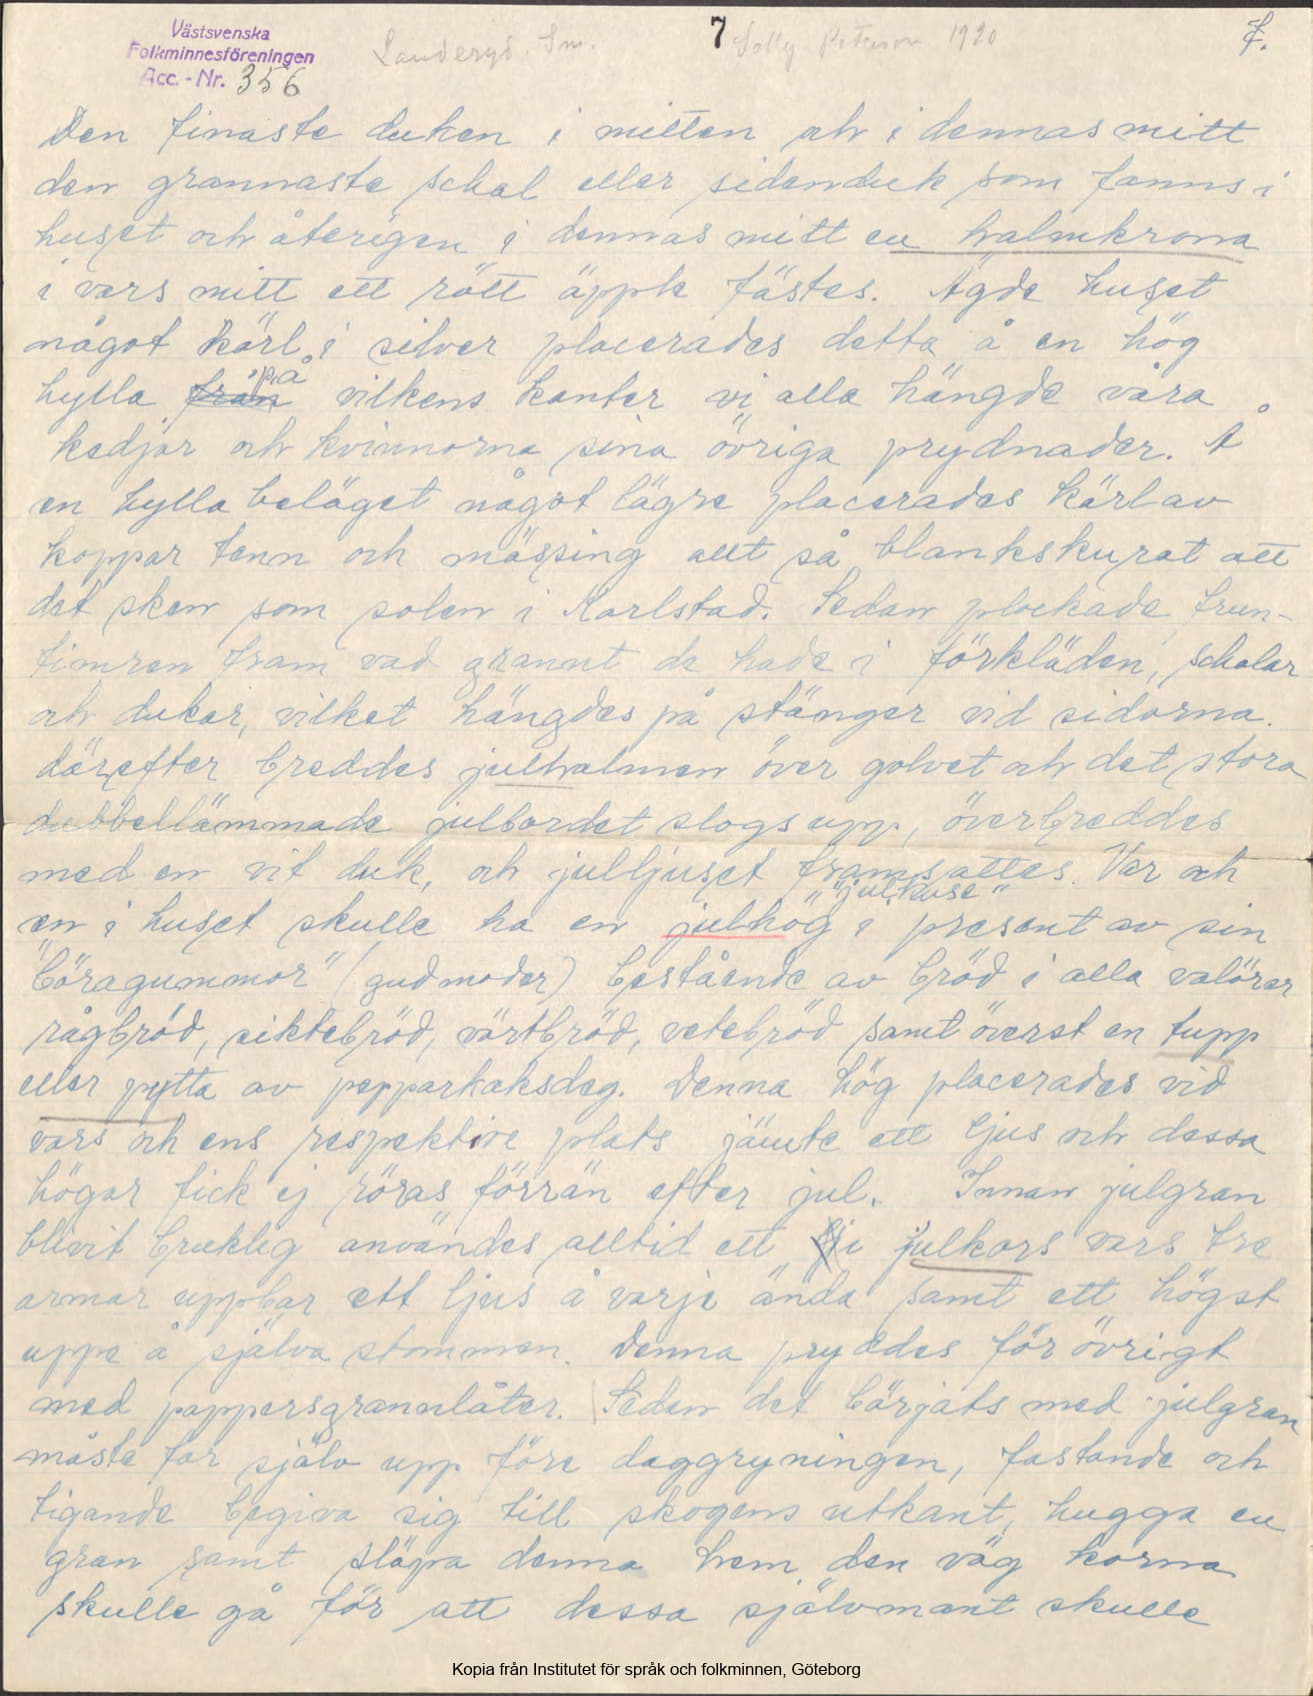 Västsvenska
Folkminnesföreningen
Acc. - Nr. 356
Landeryd. Sm. 7 Solly Peterson 1920 7.
Den finaste duken i mitten och i dennas mitt
den grannaste schal eller sidenduk som fanns i
huset och återigen i dennas mitt en halmkrona
i vars mitt ett rött äpple fästes. Ägde huset
något kärl i silver placerades detta å en hög
hylla från på vilkens kanter vi alla hängde våra
kedjor och kvinnorna sina övriga prydnader. Å
en hylla beläget något lägre placerades kärl av
koppar tenn och mässing allt så blankskurat att
det sken som solen i Karlstad. Sedan plockade frun-
timren fram vad grannt de hade i förkläden, schalar
och dukar, vilket hängdes på stänger vid sidorna.
därefter breddes julhalmen över golvet och det stora
dubbellämmade julbordet slogs upp, överbreddes
med en vit duk, och julljuset framsattes. Var och
"julkuse"
en i huset skulle ha en julhög i present av sin
"böragummor" (gudmoder) bestående av bröd i alla valörer
rågbröd, siktebröd, vörtbröd, vetebröd samt överst en tupp
eller pytta av pepparkaksdeg. Denna hög placerades vid
vars och ens respektive plats jämte ett ljus och dessa
högar fick ej röras förrän efter jul. Innan julgran
blivit bruklig användes alltid ett julkors vars tre
armar uppbar ett ljus å varje ända samt ett högst
uppe å själva stommen. Denna pryddes för övrigt
med pappersgrannlåter. Sedan det börjats med julgran
måste far själv upp före daggryningen, fastande och
tigande begiva sig till skogens utkant, hugga en
gran samt släpa denna hem den väg korna
skulle gå för att dessa självmant skulle
Kopia från Institutet för språk och folkminnen, Göteborg